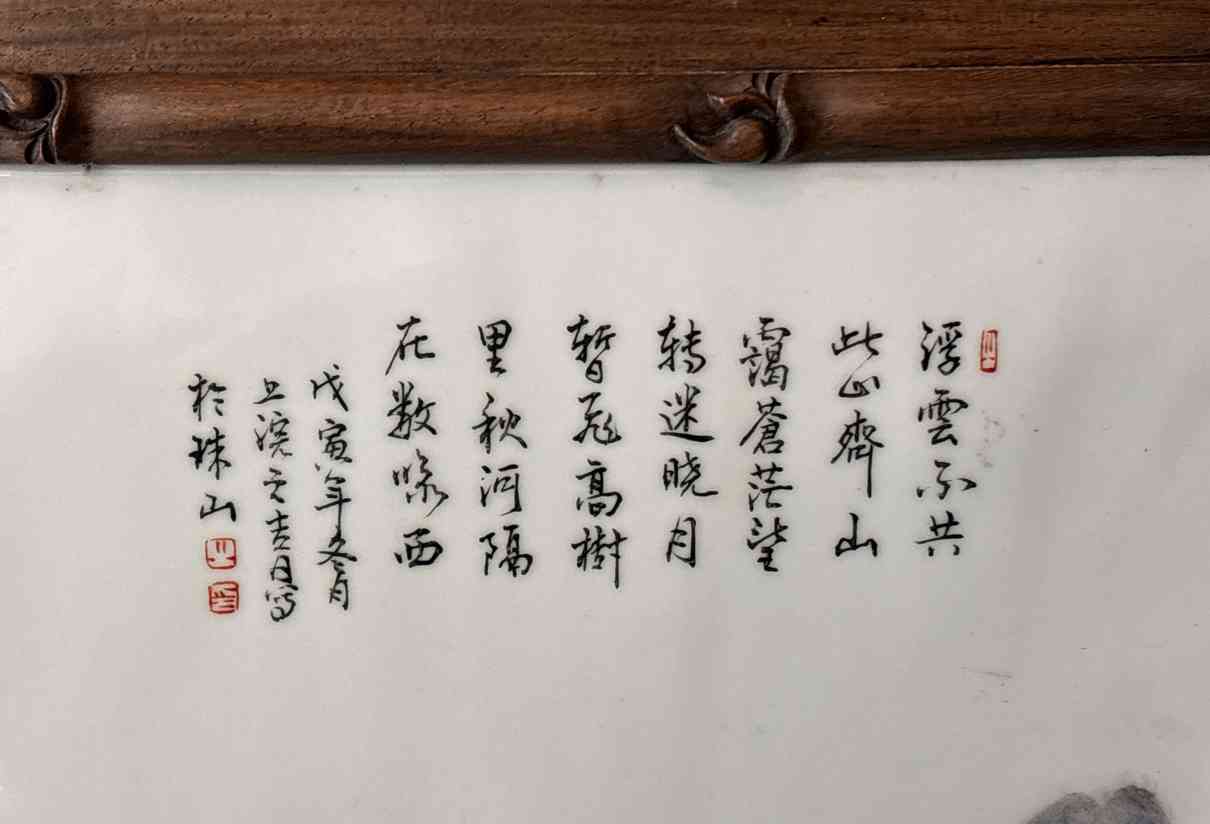 浮雲不共
此山齊山
靄蒼茫望
轉迷晓月
暫飛高樹
里秋河隔
在数峰西
戊寅年冬月
上浣之吉日写
於珠山